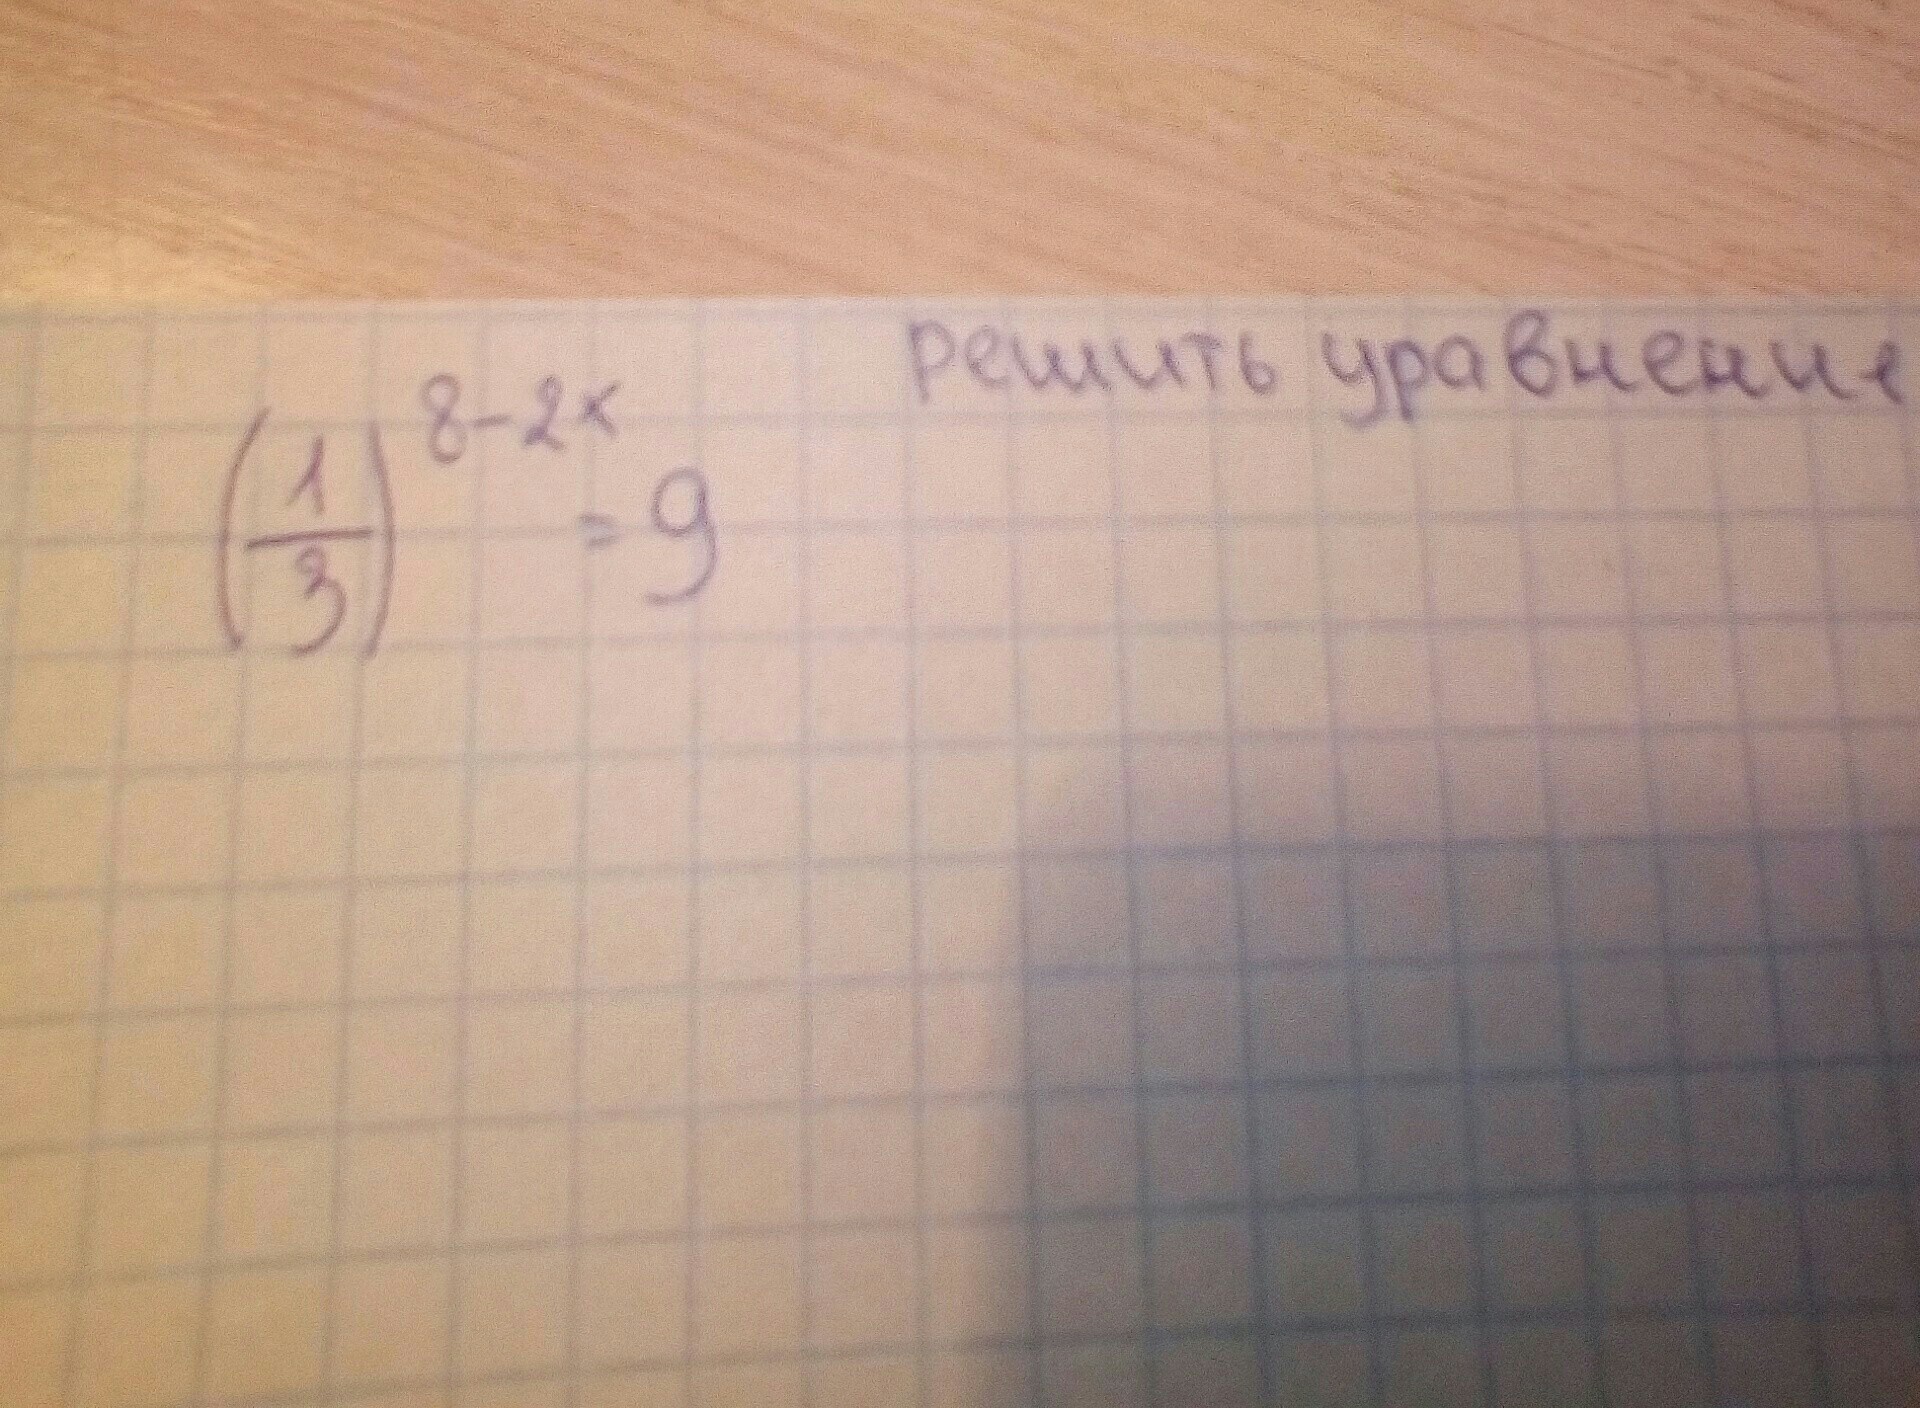 решить уравнение
(1/3)^8-2x = 9